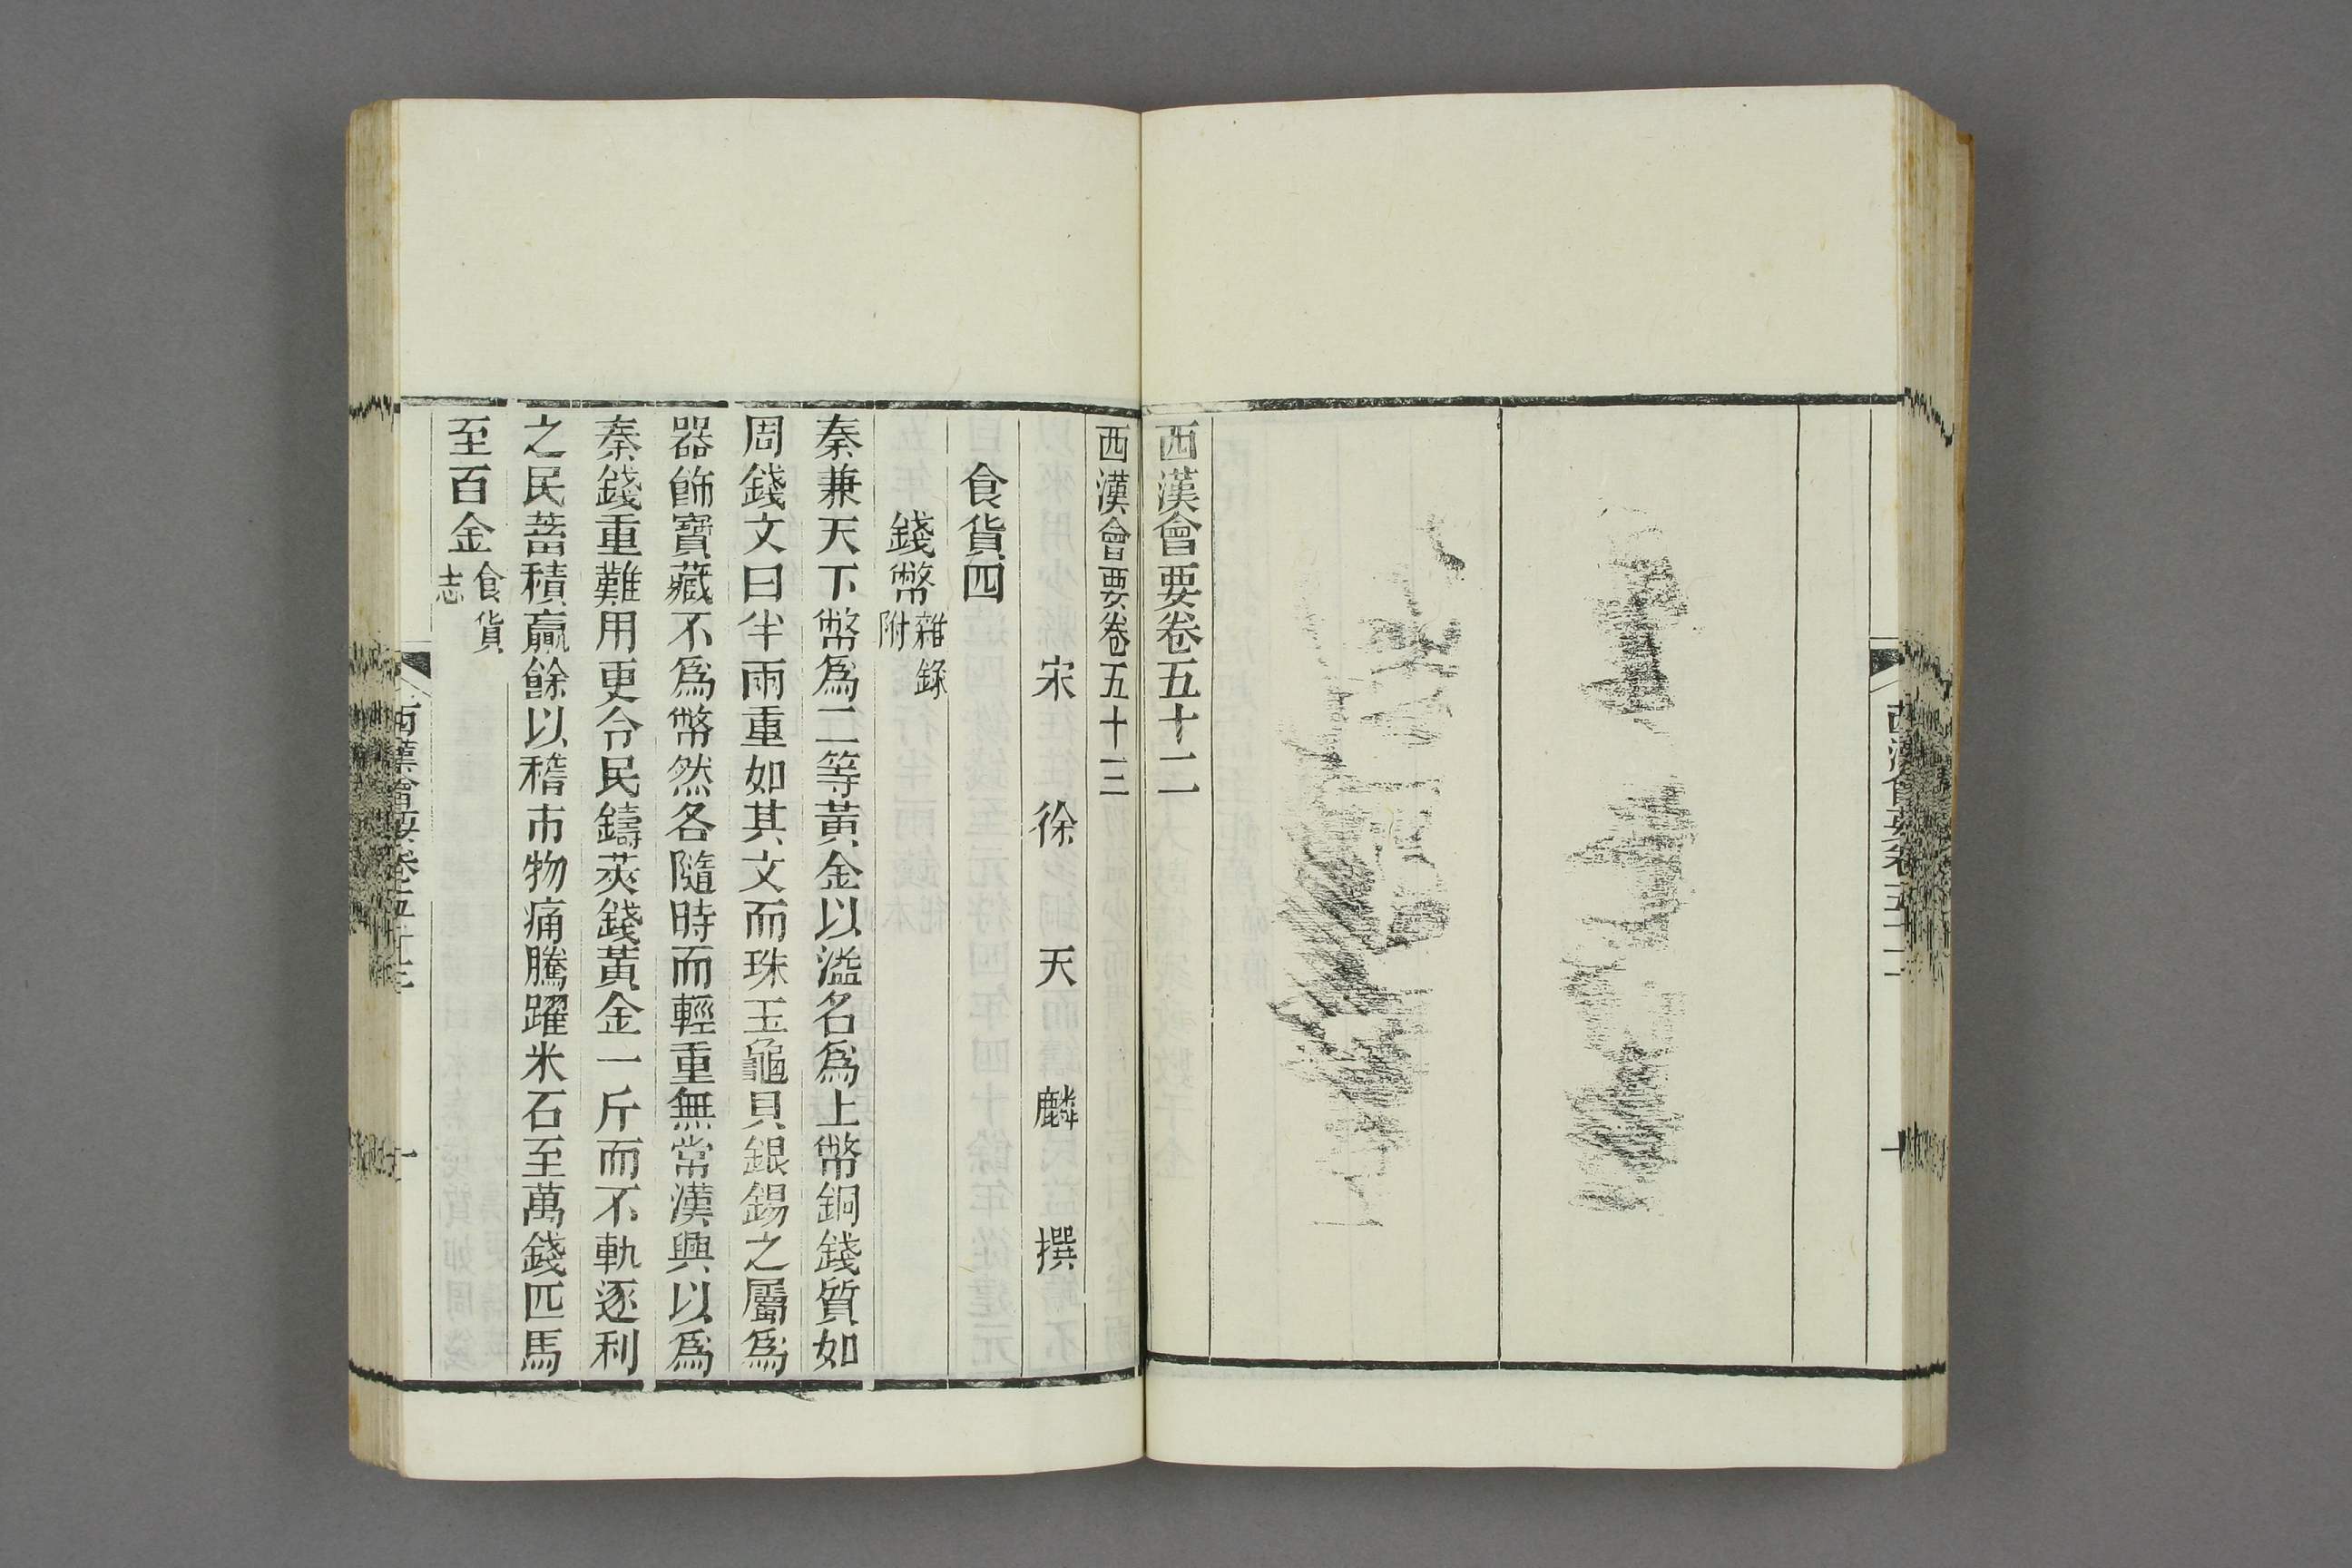 西漢會要卷五十二
西漢會要卷五十三
宋徐天麟撰
食貨四
錢幣雜錄附
秦兼天下幣爲二等黃金以溢名爲上幣銅錢質如
周錢文曰半兩重如其文而珠玉龜貝銀錫之屬爲
器飾寶藏不爲幣然各隨時而輕重無常漢興以爲
秦錢重難用更令民鑄莢錢黃金一斤而不軌逐利
之民蓄積贏餘以稽市物痛騰躍米石至萬錢匹馬
至百金食貨志